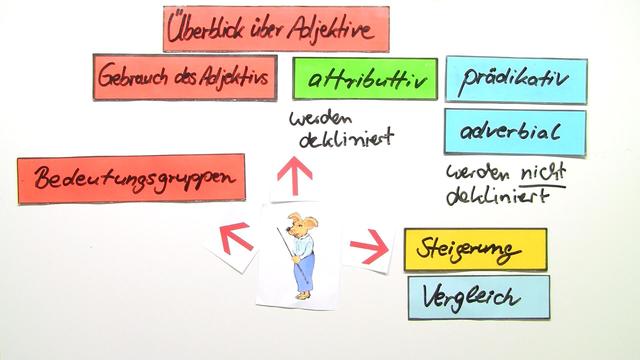 Überblick über Adjektive
Gebrauch des Adjektivs
attributtiv
prädikativ
adverbial
werden
dekliniert
werden nicht
dekliniert
Bedeutungsgruppen
Steigerung
Vergleich